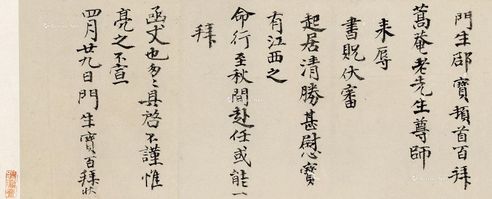 門生邵寶頓首百拜
菴老先生尊師
来辱
書貺伏審
起居清勝甚慰寳
有江西之
命行至秋間赴任或能一
拜
函丈也多々具啓不謹惟
亮之不宣
四月廿九日門生寳百拜狀